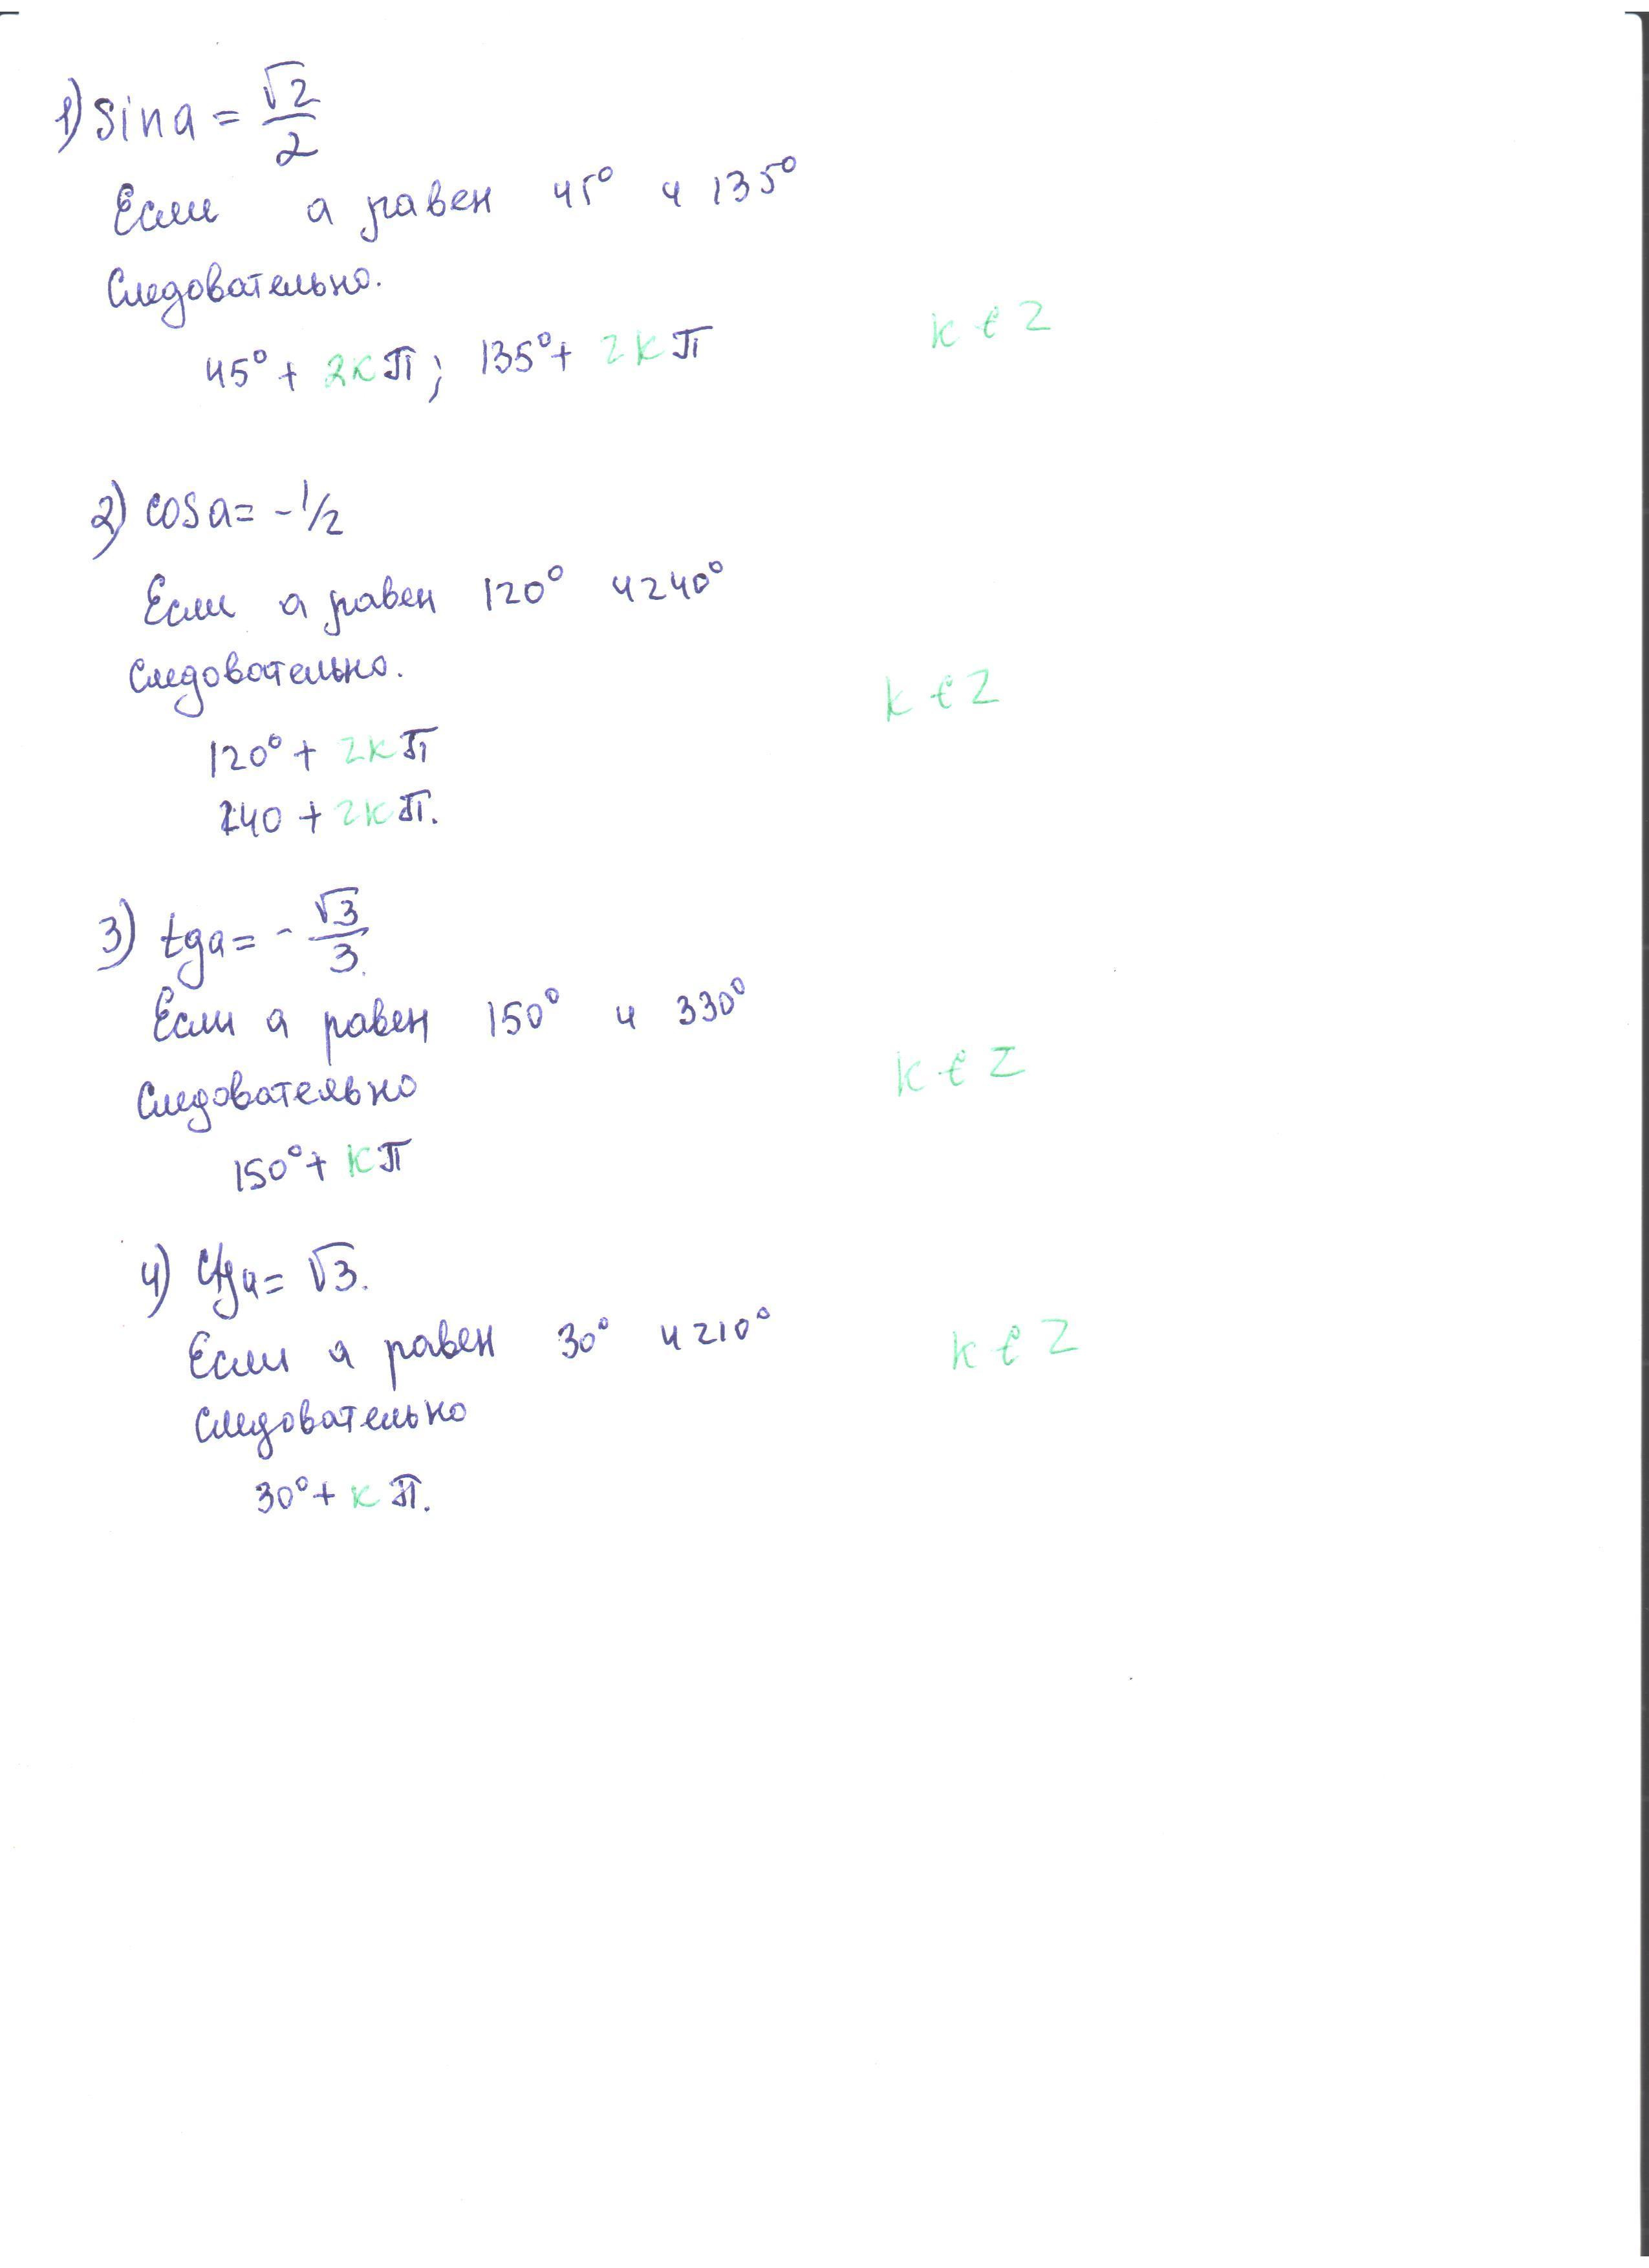 1) sina = √2/2
Если а равен 45° и 135°
Следовательно.
45° + 2kπ; 135° + 2kπ k ∈ Z
2) cosa = -1/2
Если а равен 120° и 240°
Следовательно.
k ∈ Z
120° + 2kπ
240 + 2kπ.
3) tga = - √3/3.
Если а равен 150° и 330°
Следовательно k ∈ Z
150° + kπ
4) ctga = √3.
Если а равен 30° и 210° k ∈ Z
Следовательно
30° + kπ.